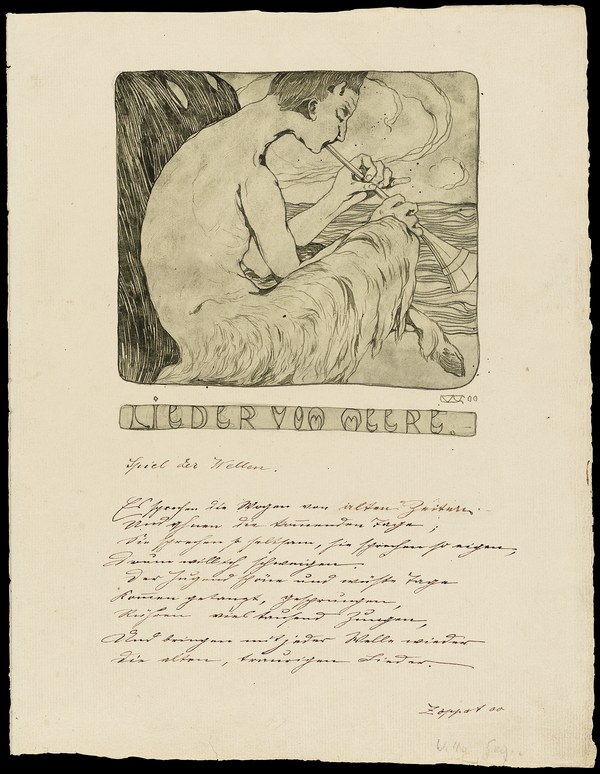 00
LIEDER VOM MEERE.
Spiel der Wellen.
Es sprechen die Wogen von alten Zeiten.
Und die kommenden Tage;
Sie sprechen so seltsam, sie sprechen so eigen,
Drum will ich schweigen.
Der Jugend schöne und Tage
Kommen getanzt, gesprungen,
Rühren vieltausend Zungen,
Und bringen mit jeder Welle wieder
Die alten, traurigen Lieder.
Zoppot 00